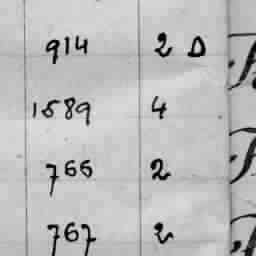 914 2 D
1589 4
766 2
767 2